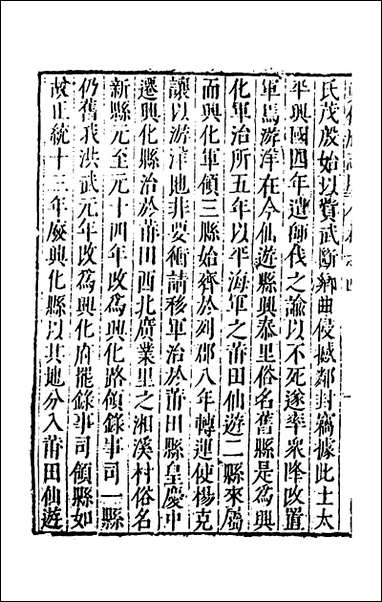 氏茂殷始以貲武斷鄉曲侵撼鄰封竊據此土太
平興國四年遣師伐之諭以不死遂率衆降改置
軍馬游洋在今仙遊縣興泰里俗名舊縣是爲興
化軍治所五年以平海軍之莆田仙遊二縣來屬
而興化軍領三縣始齊於列郡八年轉運使楊克
讓以游洋地非要衝請移軍治於莆田縣皇慶中
遷興化縣治於莆田西北廣業里之湘溪村俗名
新縣元至元十四年改爲興化路領錄事司一縣
仍舊我洪武元年改爲興化府罷錄事司領縣如
故正統十三年廢興化縣以其地分入莆田仙遊